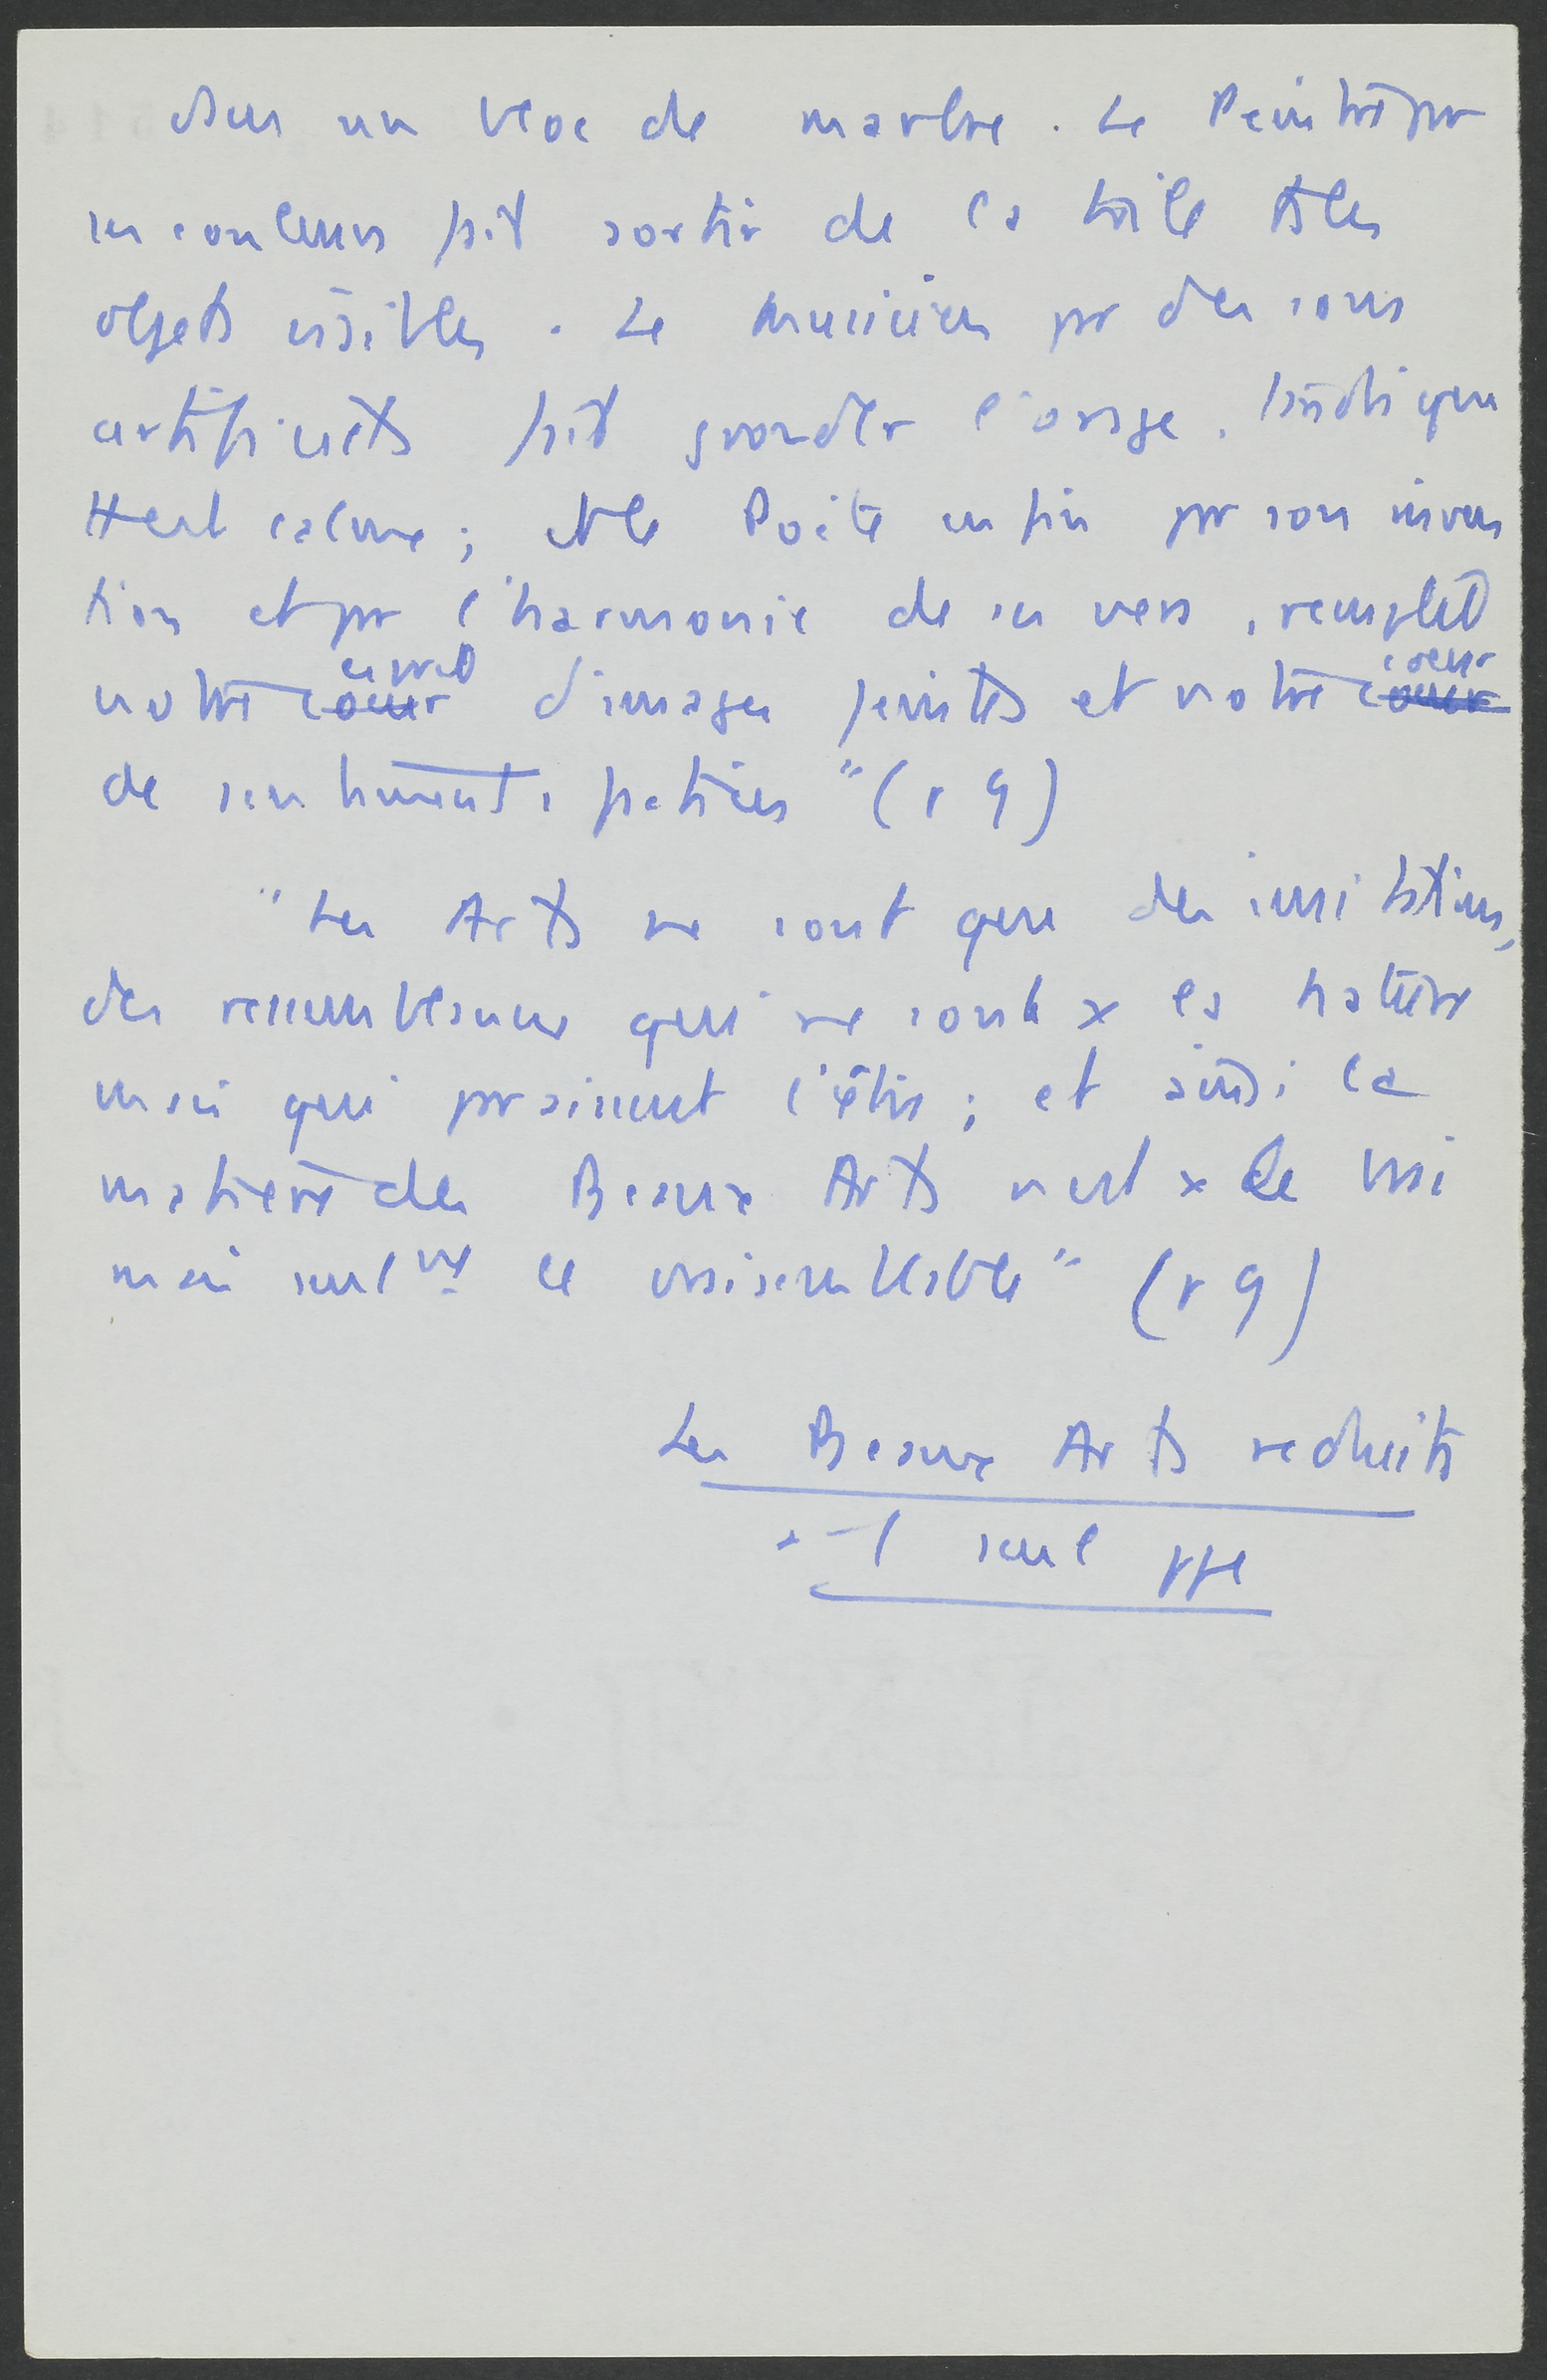 dans un bloc de marbre. Le Peintre par
ses couleurs fait sortir de la toile ts les
objets visibles. Le Musicien par des sons
artificiels fait gronder l'orage, tandis que
tt est calme; et le Poète enfin par son inven
tion et par l'harmonie de ses vers, remplit
esprit coeur
notre coeur d'images feintes et notre coeur
de sentiments factices" (p 9)
"Les Arts ne sont que des imitations,
des ressemblances qui ne sont x la nature
mais qui paraissent l'être; et ainsi la
matière des Beaux Arts n'est x le vrai
mais seulmt le vraisemblable" (p 9)
Les Beaux Arts réduits
à 1 seul ppe